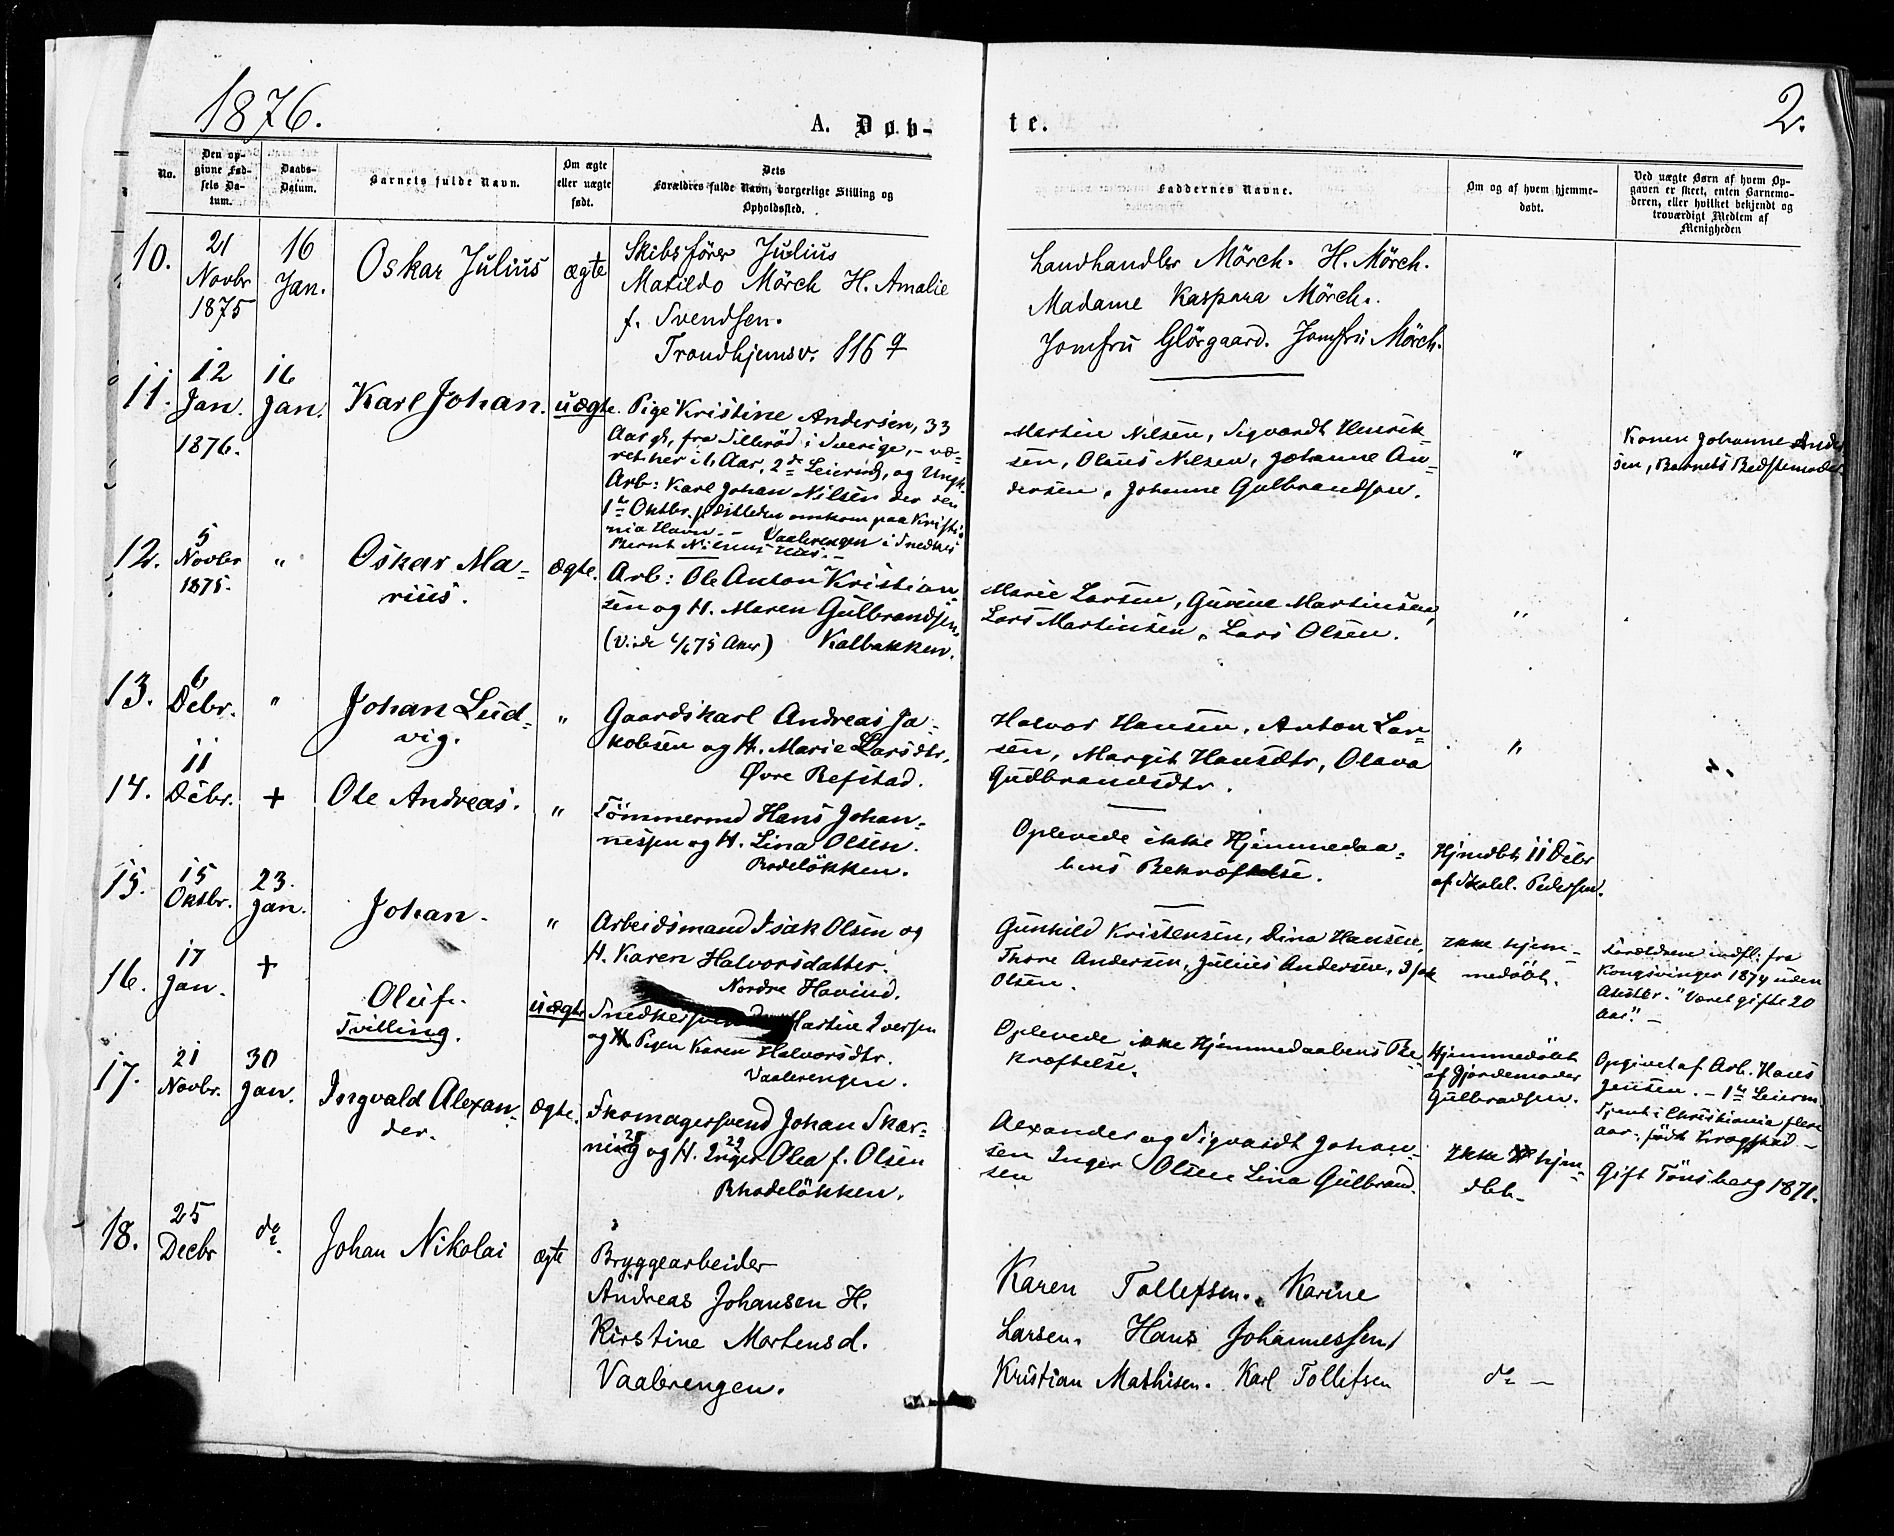 1876.
A. Døb-
te.
2.
No.
Den op-
givne Fød-
sels Da-
tum.
Daabs-
Datum.
Barnets fulde Navn.
Om ægte
eller uægte
født.
Dets
Forældres fulde Navn, borgerlige Stilling og
Opholdssted.
Faddernes Navne.
Om og af hvem hjemme-
døbt.
Ved uægte Børn af hvem Op-
gaven er skeet, enten Barnemo-
deren, eller hvilket bekjendt og
troværdigt Medlem af
Menigheden
10.
21
Novbr
1875
16
Jan.
Oskar Julius
ægte
Skibsfører Julius
Matildo Mörch H. Amalie
f. Svendsen.
Trondhjemsv. 116 q
Landhandler Mörch. H. Mörch.
Madame Kaspara Mörch.
Jomfru Glörgaard. Jomfru Mörch.
11.
12
Jan.
1876.
16
Jan.
Karl Johan.
uægte.
Pige Kristine Andersen, 33
Aar gl, fra Silleröd i Sverige, - væ-
ret her i 6 Aar, 2de Leierm, og Ungk.
Arb: Karl Johan Nilsen der den
1te Oktbr. sidstleden omkom paa Kristia-
nia Havn. - Vaalerengen i Snedker
Bernt Nilsens Hus. -
Martin Nilsen, Sigvardt Henrik-
sen, Olaus Nilsen, Johanne An-
dersen, Johanne Gulbrandsen.
"
Konen Johanne Ander
sen, Barnets Bedstemoder
12.
5
Novbr
1875.
"
Oskar Ma-
rius.
ægte.
Arb: Ole Anton Kristian-
sen og H. Maren Gulbrandsen,
(Vide 1/6 75 Aker) Kalbakken.
Marie Larsen, Gurine Martinsen,
Lars Martinsen, Lars Olsen.
"
13.
6
Debr.
"
Johan Lud-
vig.
"
Gaardskarl Andreas Ja-
kobsen og H. Marie Larsdtr,
Øvre Refstad.
Halvor Hansen, Anton Lar-
sen, Margit Hansdtr, Olava
Gudbrandsdtr.
"
14.
11
Debr.
+
Ole Andreas.
"
Tömmermd Hans Johan-
nessen og H. Lina Olsen.
Rodelökken.
Oplevede ikke Hjemmedaa-
bens Bekræftelse.
Hjmdbt 11 Debr
af Skolel. Pedersen.
15.
15
Oktbr.
23.
Jan.
Johan.
"
Arbeidsmand Isak Olsen og
H. Karen Halvorsdatter.
Nordre Hovind.
Gunhild Kristensen, Dina Hansen,
Thore Andersen, Julius Andersen, Isak
Olsen.
Ikke hjem-
medöbt.
Forældrene indfl. fra
Kongsvinger 1874 uden
Atester. "Været gifte 20
Aar." -
16.
17
Jan.
+
Oluf.
Tvilling.
uægte
Snedkersvend Martin Iversen
og Pigen Karen Halvorsdtr.
Vaalerengen.
Oplevede ikke Hjemmedaabens Be-
kræftelse.
Hjemmedöbt
af Gjordemoder
Gulbrandsen.
Opgivet af Arb. Hans
Jensen. - 1te Leierm.
Tjent i Christiania flere
aar, født Krogstad -
17.
21
Novbr.
30
Jan.
Ingvald Alexan-
der.
ægte.
Skomagersvend Johan Skar-
ning og H. Inger Olea f. Olsen
28 29
Rhodelökken.
Alexander og Sigvardt Johan-
sen Inger Olsen Lina Gulbrand-
sen
Ikke hjem-
dbt.
Gift Tönsberg 1871.
18.
25
Decbr
do
Johan Nikolai
ægte
Bryggearbeider
Andreas Johansen H.
Kirstine Mortensd.
Vaalerengen.
Karen Tollefsen. Karine
Larsen. Hans Johannessen
Kristian Mathisen. Karl Tollefsen
do -